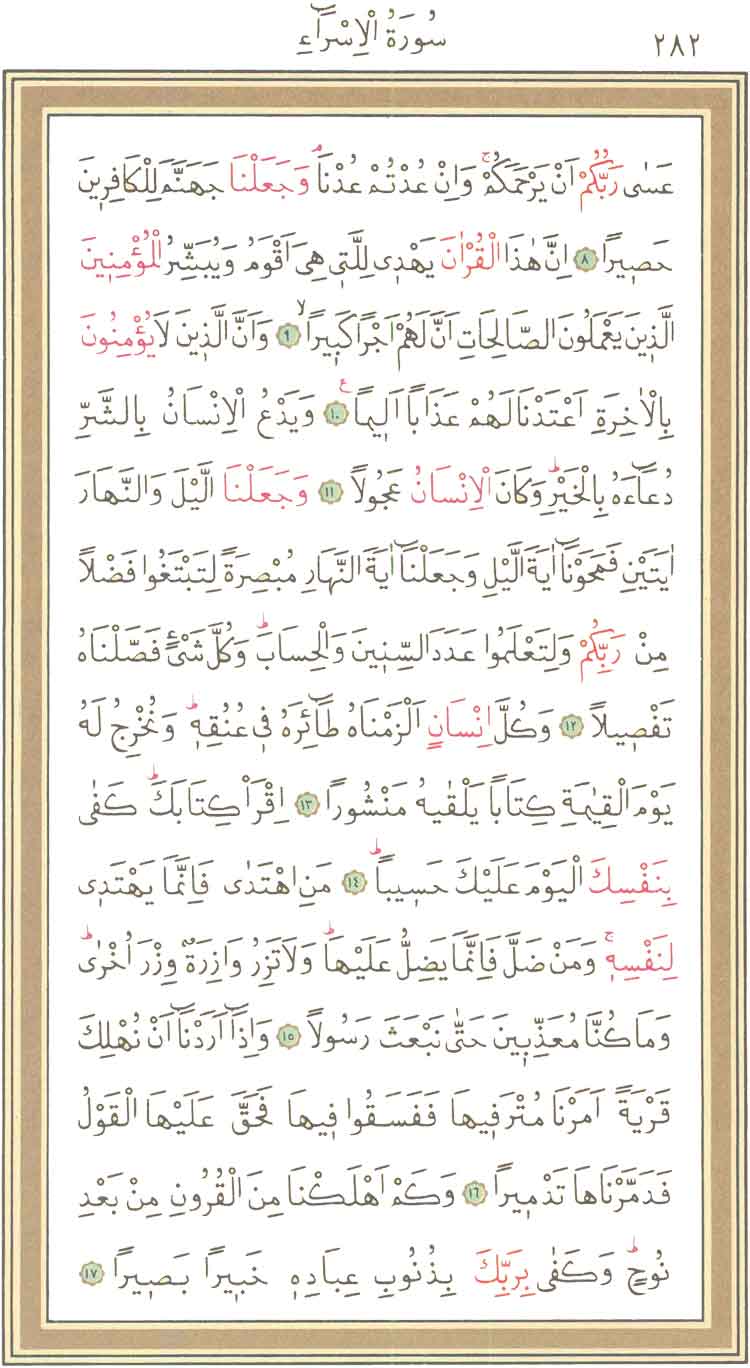 سُورَةُ الْاِسْرَٓاءِ ٢٨٢
عَسٰى رَبُّكُمْ اَنْ يَرْحَمَكُمْۚ وَاِنْ عُدْتُمْ عُدْنَاۢ وَجَعَلْنَا جَهَنَّمَ لِلْكَافِرٖينَ
حَصٖيراً ٨ اِنَّ هٰذَا الْقُرْاٰنَ يَهْدٖى لِلَّتٖى هِىَ اَقْوَمُ وَيُبَشِّرُ الْمُؤْمِنٖينَ
الَّذٖينَ يَعْمَلُونَ الصَّالِحَاتِ اَنَّ لَهُمْ اَجْراً كَبٖيراًۙ ٩ وَاَنَّ الَّذٖينَ لَا يُؤْمِنُونَ
بِالْاٰخِرَةِ اَعْتَدْنَا لَهُمْ عَذَاباً اَلٖيماًࣖ ١٠ وَيَدْعُ الْاِنْسَانُ بِالشَّرِّ
دُعَٓاءَهُ بِالْخَيْرِؕ وَكَانَ الْاِنْسَانُ عَجُولاً ١١ وَجَعَلْنَا الَّيْلَ وَالنَّهَارَ
اٰيَتَيْنِ فَمَحَوْنَٓا اٰيَةَ الَّيْلِ وَجَعَلْنَٓا اٰيَةَ النَّهَارِ مُبْصِرَةً لِتَبْتَغُوا فَضْلاً
مِنْ رَبِّكُمْ وَلِتَعْلَمُوا عَدَدَ السِّنٖينَ وَالْحِسَابَؕ وَكُلَّ شَیْءٍ فَصَّلْنَاهُ
تَفْصٖيلاً ١٢ وَكُلَّ اِنْسَانٍ اَلْزَمْنَاهُ طَٓائِرَهُ فٖى عُنُقِهٖؕ وَنُخْرِجُ لَهُ
يَوْمَ الْقِيٰمَةِ كِتَاباً يَلْقٰيهُ مَنْشُوراً ١٣ اِقْرَاْ كِتَابَكَؕ كَفٰى
بِنَفْسِكَ الْيَوْمَ عَلَيْكَ حَسٖيباًؕ ١٤ مَنِ اهْتَدٰى فَاِنَّمَا يَهْتَدٖى
لِنَفْسِهٖۚ وَمَنْ ضَلَّ فَاِنَّمَا يَضِلُّ عَلَيْهَاؕ وَلَا تَزِرُ وَازِرَةٌ وِزْرَ اُخْرٰىؕ
وَمَا كُنَّا مُعَذِّبٖينَ حَتّٰى نَبْعَثَ رَسُولاً ١٥ وَاِذَٓا اَرَدْنَٓا اَنْ نُهْلِكَ
قَرْيَةً اَمَرْنَا مُتْرَفٖيهَا فَفَسَقُوا فٖيهَا فَحَقَّ عَلَيْهَا الْقَوْلُ
فَدَمَّرْنَاهَا تَدْمٖيراً ١٦ وَكَمْ اَهْلَكْنَا مِنَ الْقُرُونِ مِنْ بَعْدِ
نُوحٍؕ وَكَفٰى بِرَبِّكَ بِذُنُوبِ عِبَادِهٖ خَبٖيراً بَصٖيراً ١٧